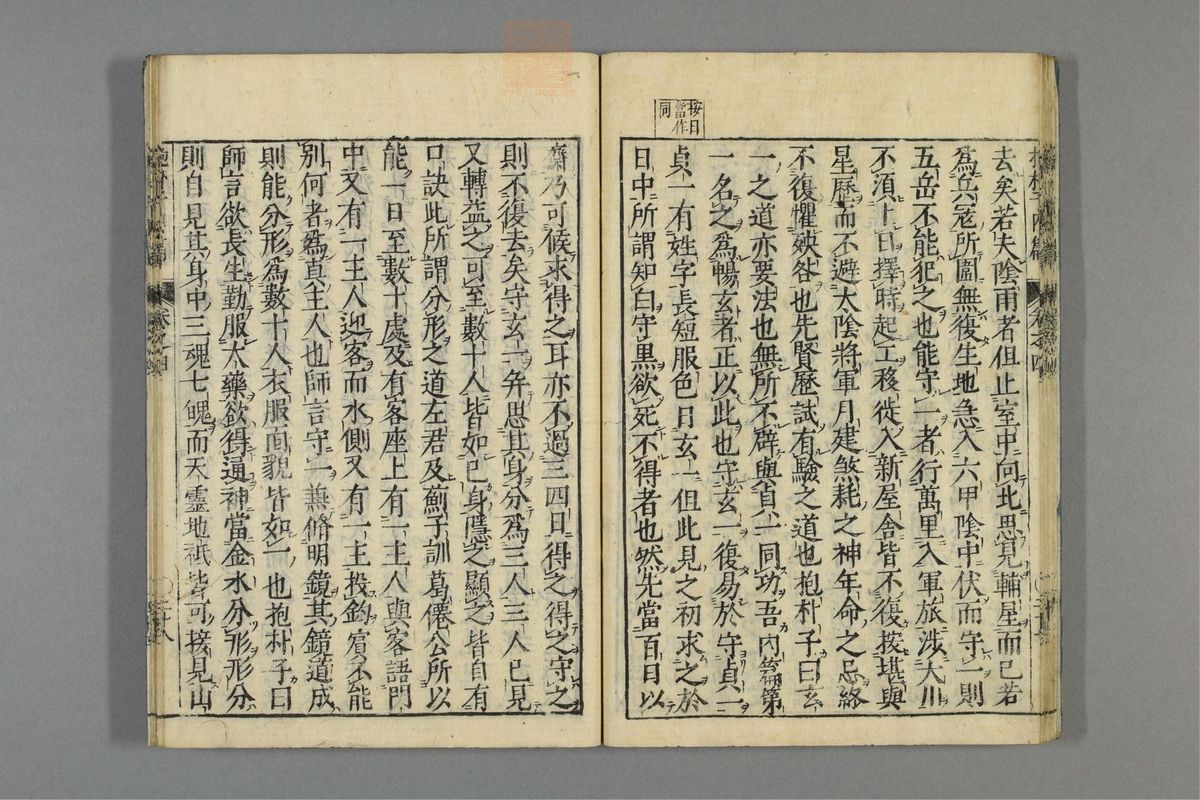 按日
當作
同
去矣若夫陰雨者但止室中向北思見輔星而已若
爲兵寇所圍無復生地急入六甲陰中伏而守一則
五岳不能犯之也能守一者行萬里入軍旅涉大川
不須卜日擇時起工移徙入新屋舍皆不復按堪輿
星曆而不避太陰將軍月建煞耗之神年命之忌終
不復懼殃咎也先賢歷試有驗之道也抱朴子曰玄
一之道亦要法也無所不辟與貞一同功吾內篇第
一名之爲暢玄者正以此也守玄一復易於守貞一
貞一有姓字長短服色日玄一但此見之初求之於
日中所謂知白守黑欲死不得者也然先當百日以
齋乃可候求得之耳亦不過三四日得之得之守之
則不復去矣守玄一并思其身分爲三人三人已見
又轉益之可至數十人皆如己身隱之顯之皆自有
口訣此所謂分形之道左君及薊子訓葛僊公所以
能一日至數十處及有客座上有一主人與客語門
中又有一主人迎客而水側又有一主投釣賓不能
別何者爲真主人也師言守一兼脩明鏡其鏡道成
則能分形爲數十人衣服面貌皆如一也抱朴子曰
師言欲長生勤服大藥欲得通神當金水分形形分
則自見其身中三魂七魄而天靈地祇皆可接見山